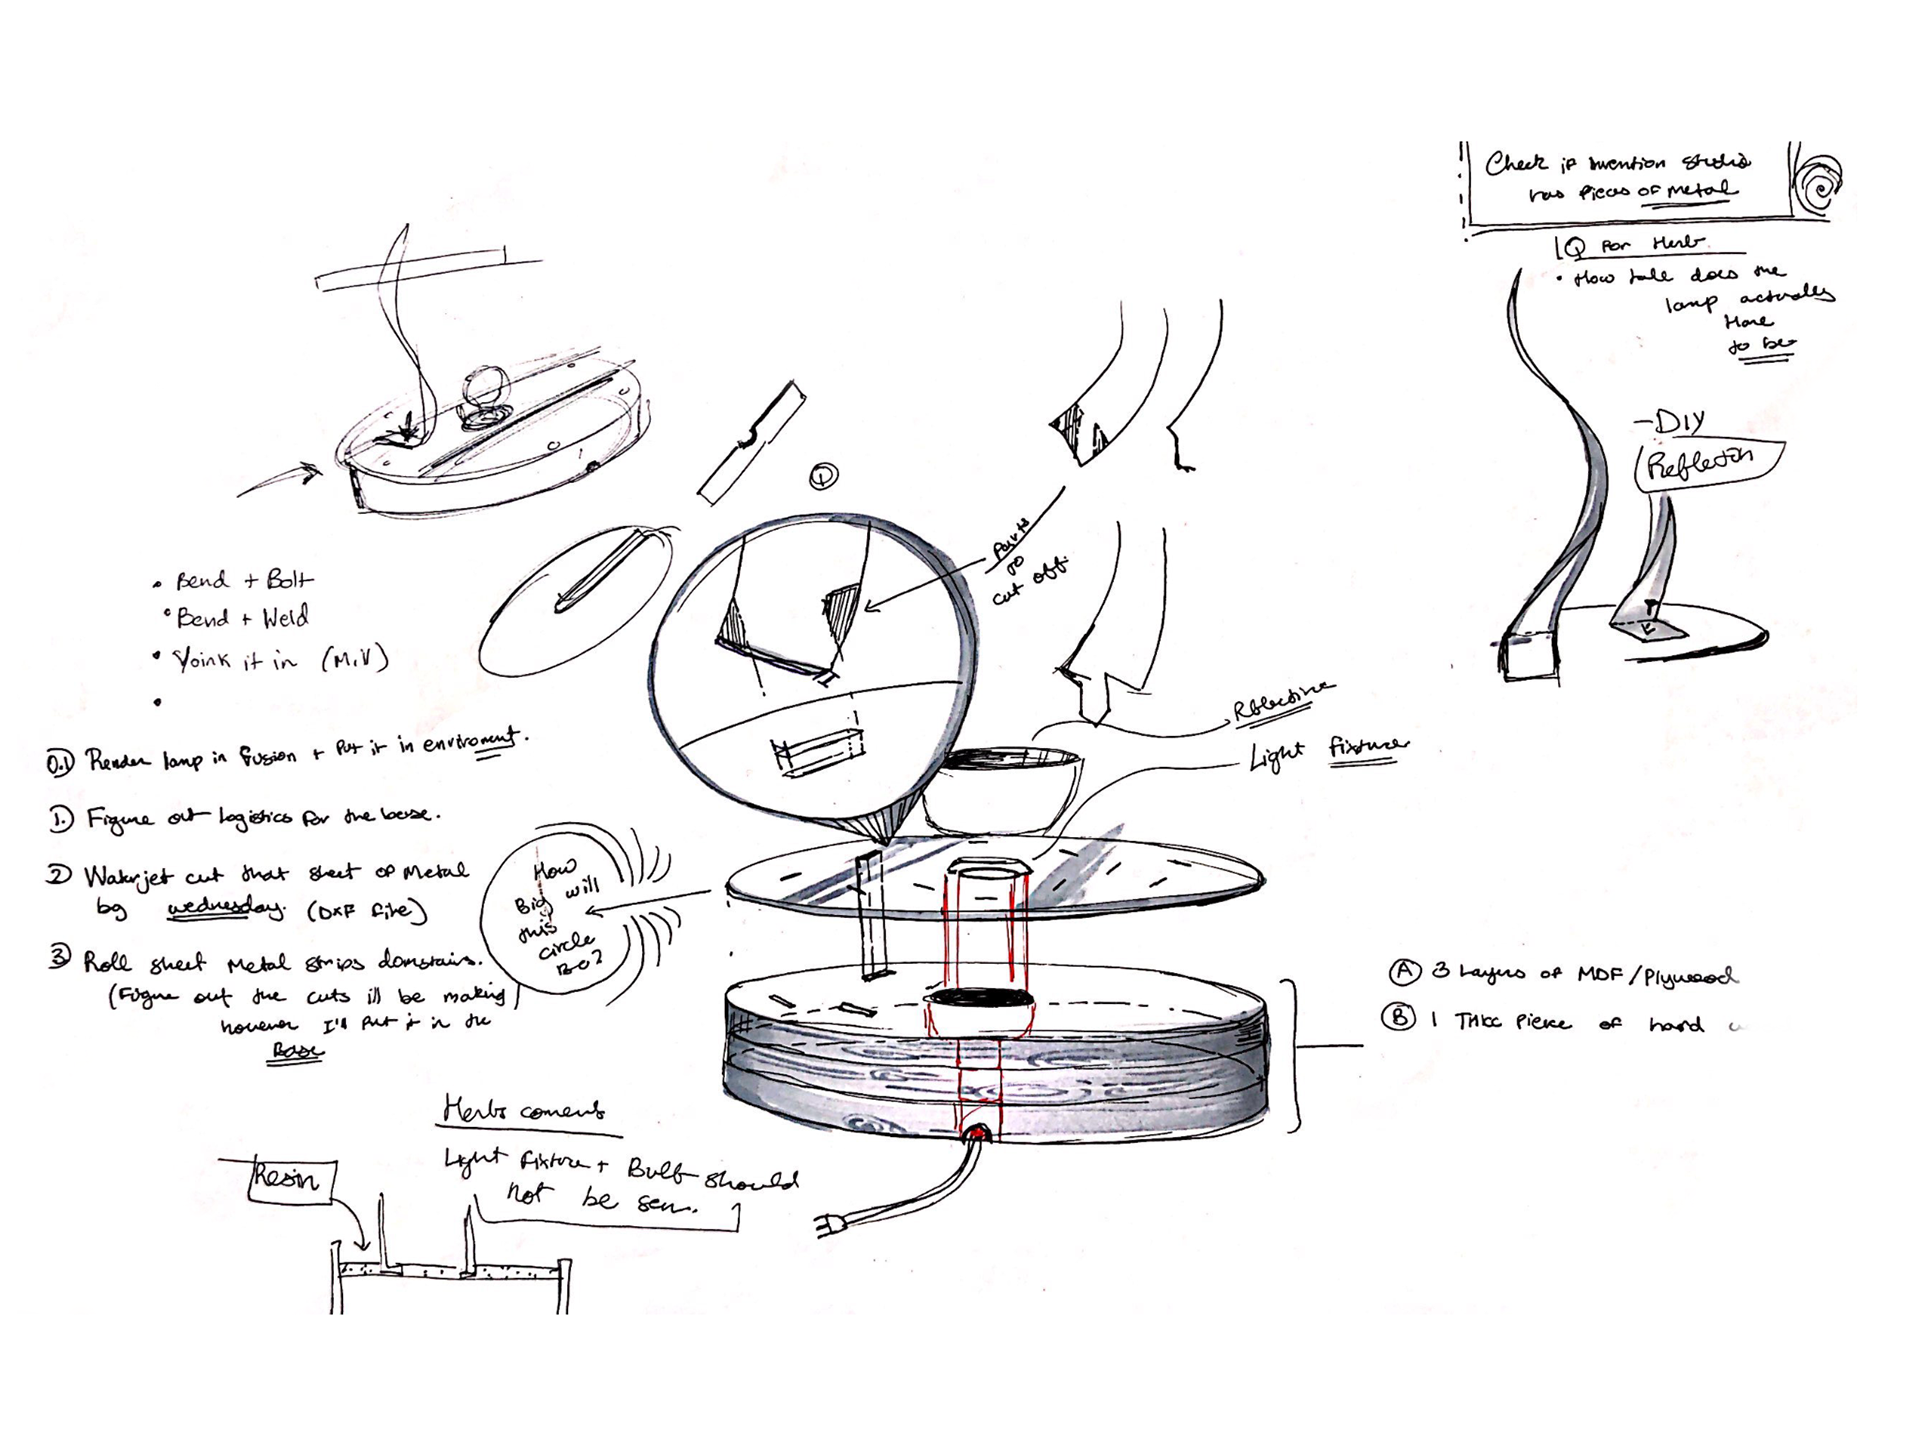 Check if Invention Studio
has Pieces of metal
Q for Herb.
• How tall does the
lamp actually
Have
to be
- DIY
Reflector
Q
Parts
to
cut off.
• Bend + Bolt
• Bend + Weld
• Yoink it in (M.V)
•
0.1) Render lamp in Fusion + Put it in enviroment.
1.) Figure out logistics for the base.
2) Waterjet cut that sheet of Metal
by wednesday. (DXF File)
3) Roll sheet Metal strips downstairs.
(Figure out the cuts ill be making
however I'll Put it in the
Base
How
Big will
this
circle
Be?
Reflective
Light fixture
A 3 Layers of MDF/Plywood
B 1 Thicc Piece of hard
Herbs coments
Light Fixture + Bulb should
not be seen.
Resin